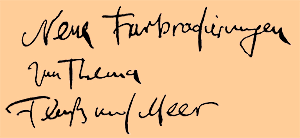 Neue Farbradierungen
zum Thema
Fluß und Meer